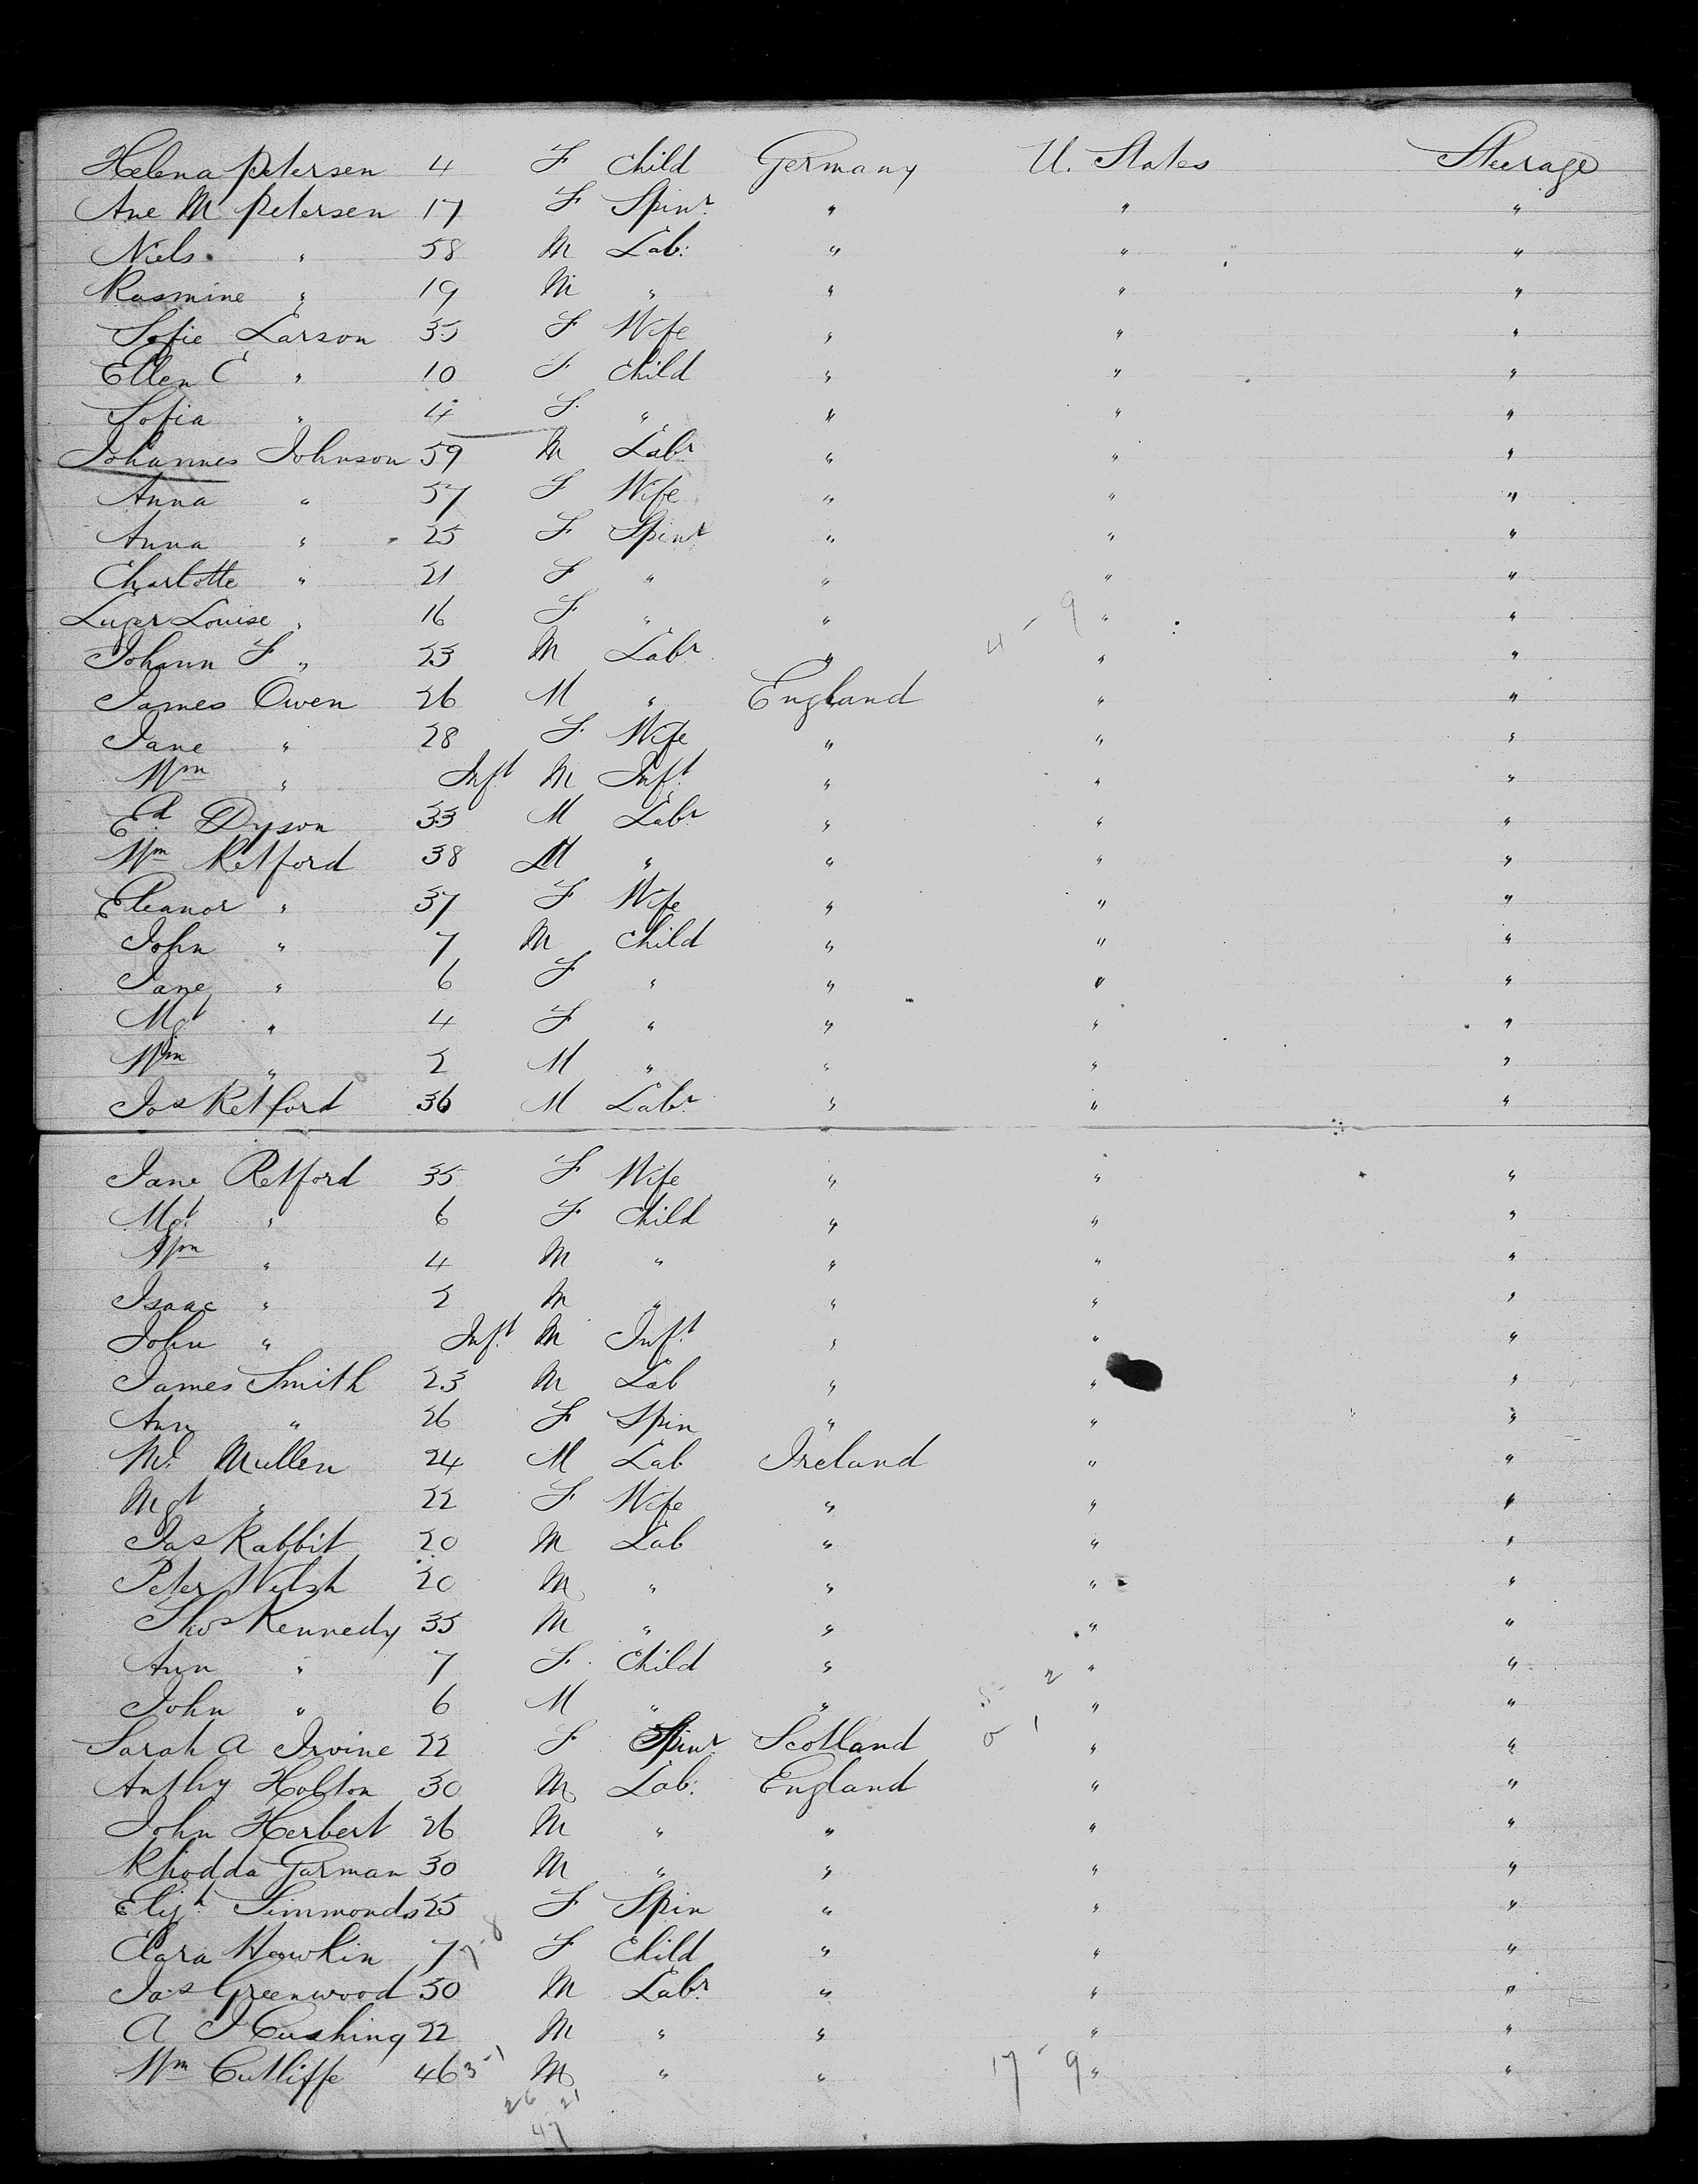 Helena Petersen 4 F Child Germany U. States Steerage
Ane M Petersen 17 F Spinr " " "
Niels " 58 M Lab: " " "
Rasmine " 19 M " " " "
Sofie Larson 35 F Wife " " "
Ellen C " 10 F Child " " "
Sofia " 4 F " " " "
Johannes Johnson 59 M Labr " " "
Anna " 57 F Wife " " "
Anna " 25 F Spinr " " "
Charlotte " 21 F " " " "
Louise " 16 F " " " "
4 - 9
Johann F " 23 M Labr " " "
James Owen 26 M " England " "
Jane " 28 F Wife " " "
Wm " Inft M Inft " " "
Ed Dyson 33 M Labr " " "
Wm Retford 38 M " " " "
Eleanor " 37 F Wife " " "
John " 7 M Child " " "
Jane " 6 F " " " "
Mgt " 4 F " " " "
Wm " 2 M " " " "
Jos Retford 36 M Labr " " "
Jane Retford 35 F Wife " " "
Mgt " 6 F Child " " "
Wm " 4 M " " " "
Isaac " 2 M " " " "
John " Inft M Inft " " "
James Smith 23 M Lab " " "
Ann " 26 F Spin " " "
Mullen 24 M Lab Ireland " "
Mgt " 22 F Wife " " "
Jas Rabbit 20 M Lab " " "
Peter Welsh 20 M " " " "
Thos Kennedy 35 M " " " "
Ann " 7 F Child " " "
John " 6 M " " 5 2 " "
Sarah A Irvine 22 F Spinr Scotland 0 1 " "
Anthy Holton 30 M Lab: England " "
John Herbert 26 M " " " "
Rhodda Garman 30 M " " " "
Elizh Simmonds 25 F Spin " " "
Clara Hawkin 7 7-8 F Child " " "
Jas Greenwood 50 M Labr " " "
A J Cushing 22 M " " " "
Wm Cutliffe 46 3-1 M " " 17 - 9 " "
26 21
47